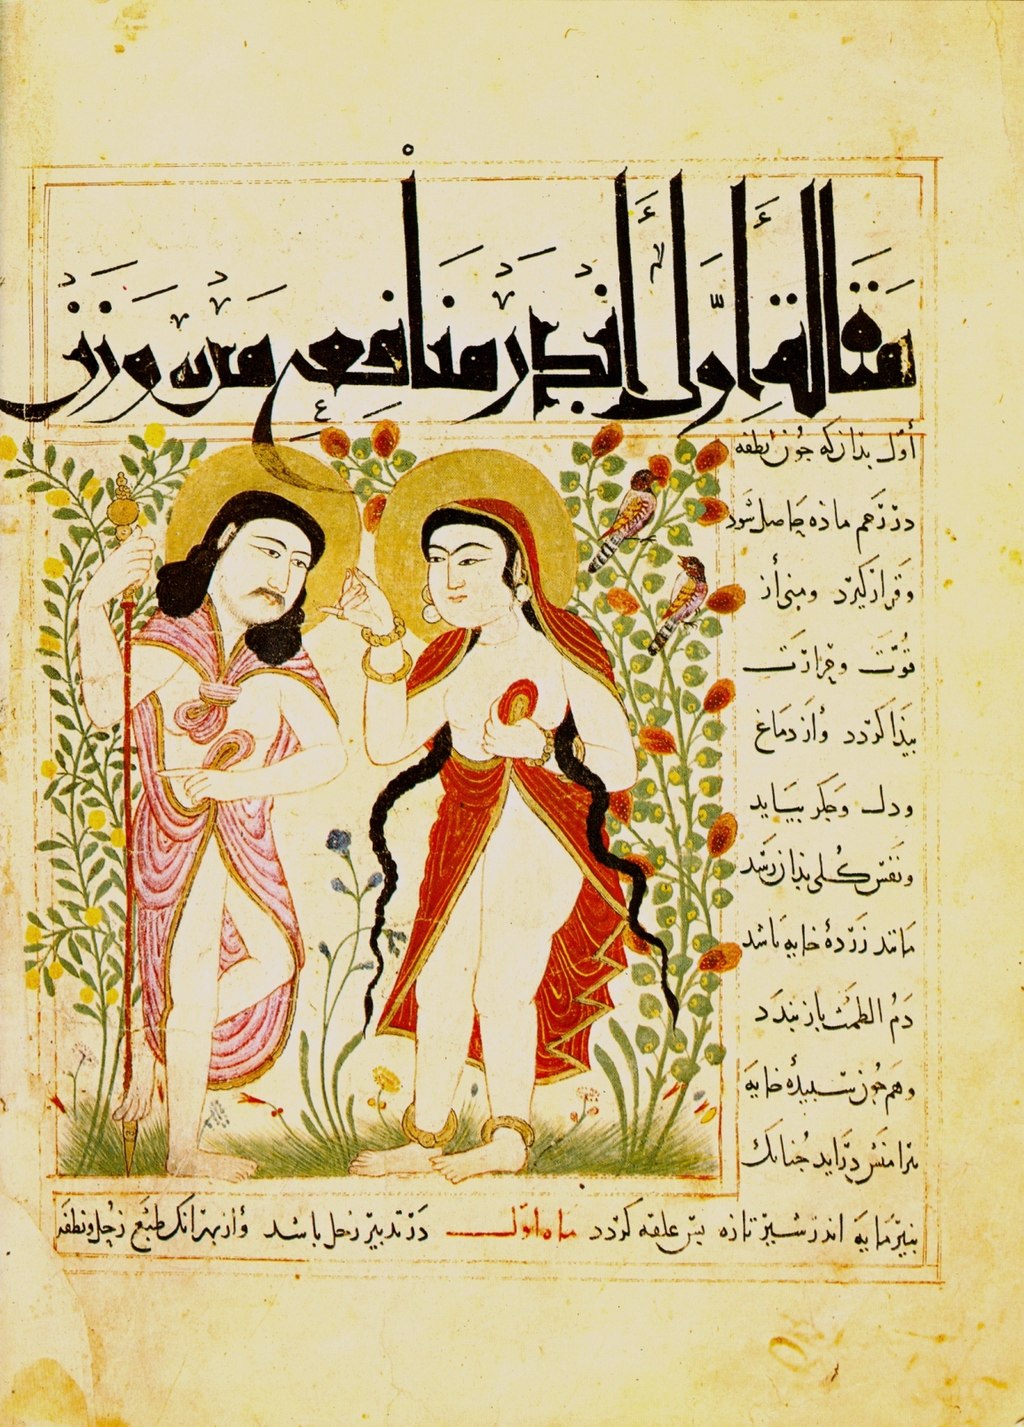 مقالة أوّل أندر منافع مرن وزن
أوّل بدانکه جون نطفه
در رحم ماده حاصل شود
وقرار کیرد ومنی أز
قوّت وحرارت
بیذا کردد وأز دماغ
ودل وجکر بیاید
ونفس کلی بذان رسد
مانند زردهٔ خایه باشد
دم الطمث باز بندد
وهم جون سبیدهٔ خایه
برامنش درآید جنانک
بنیرمایه اندر شیر تازه بس علقه کردد ماه اوّل در تدبیر زحل باشد وأز بهر انک طبع زحل ونطفه